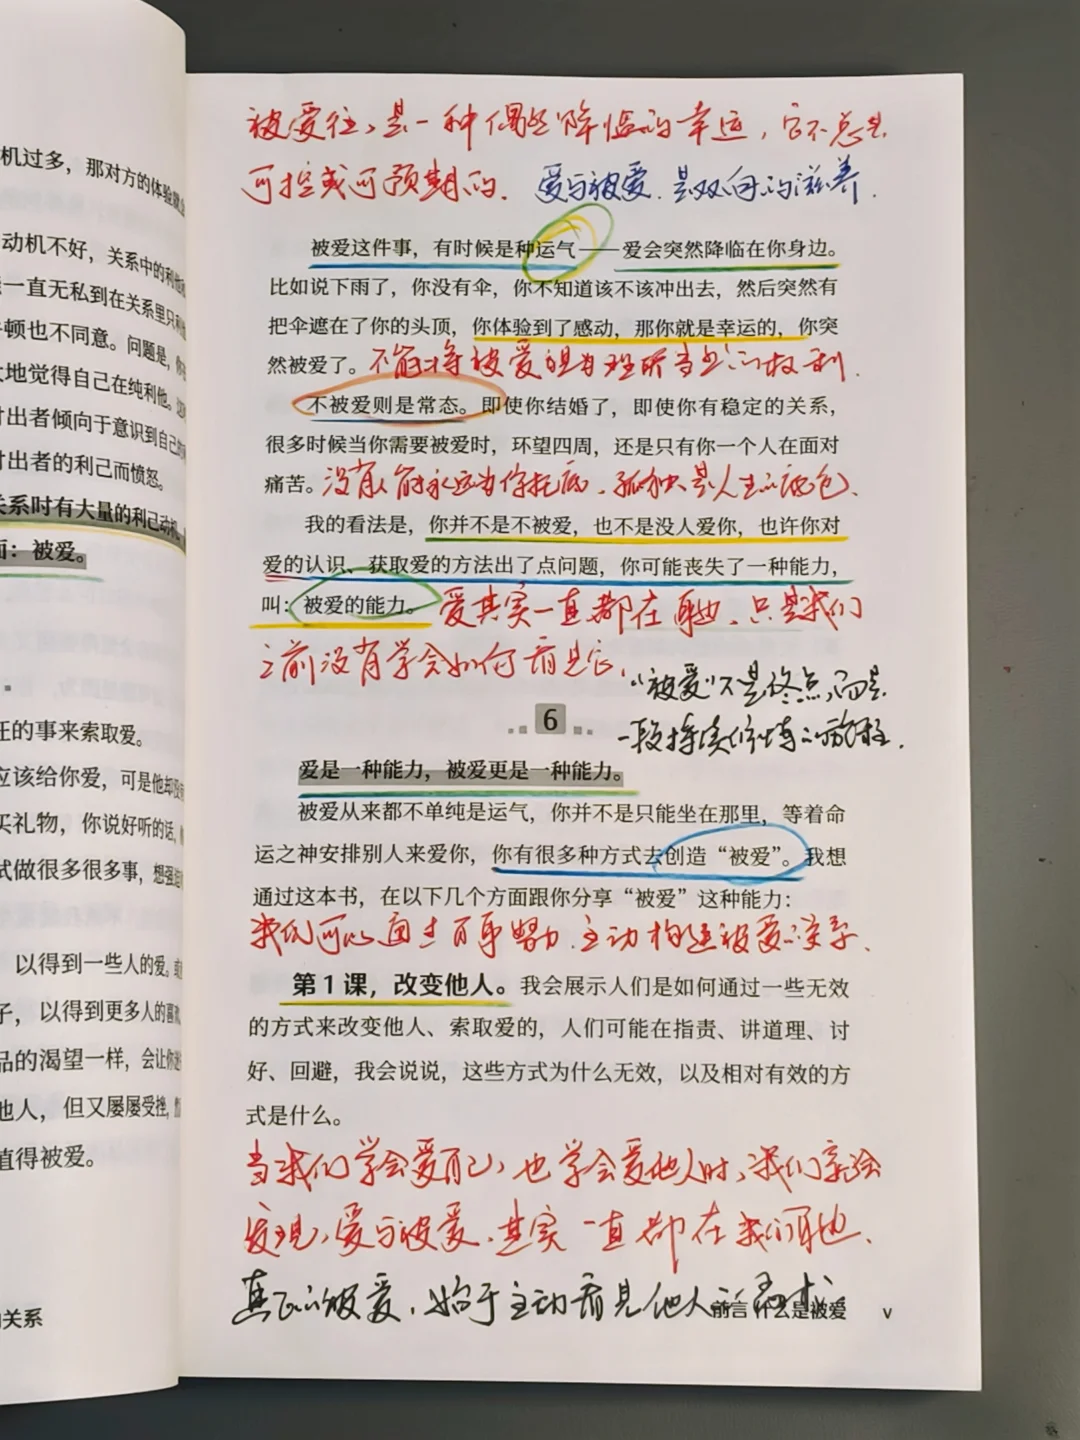 机过多，那对方的体验就会
动机不好，关系中的利他
一直无私到在关系里只利
顿也不同意。问题是，你
地觉得自己在纯利他。
出者倾向于意识到自己
出者的利己而愤怒。
关系时有大量的利己动机
面：被爱。
的事来索取爱。
应该给你爱，可是他却没
买礼物，你说好听的话，
试做很多很多事，想强迫
以得到一些人的爱。或
子，以得到更多人的喜欢
品的渴望一样，会让你
他人，但又屡屡受挫，
值得被爱。
关系
被爱往，是一种偶然降临的幸运，它不总是
可控或可预期的。爱与被爱，是双向的滋养。
被爱这件事，有时候是种运气——爱会突然降临在你身边。
比如说下雨了，你没有伞，你不知道该不该冲出去，然后突然有
把伞遮在了你的头顶，你体验到了感动，那你就是幸运的，你突
然被爱了。不能将被爱理所当然的权利。
不被爱则是常态。即使你结婚了，即使你有稳定的关系，
很多时候当你需要被爱时，环望四周，还是只有你一个人在面对
痛苦。没有人能永远为你托底，孤独是人生的底色。
我的看法是，你并不是不被爱，也不是没人爱你，也许你对
爱的认识、获取爱的方法出了点问题，你可能丧失了一种能力，
叫：被爱的能力。爱其实一直都在身边，只是我们
之前没有学会如何看见它。
“被爱”不是终点，而是
一段持续修炼的旅程。
6
爱是一种能力，被爱更是一种能力。
被爱从来都不单纯是运气，你并不是只能坐在那里，等着命
运之神安排别人来爱你，你有很多种方式去创造“被爱”。我想
通过这本书，在以下几个方面跟你分享“被爱”这种能力：
我们可以通过自身努力，主动构建被爱的关系。
第1课，改变他人。我会展示人们是如何通过一些无效
的方式来改变他人、索取爱的，人们可能在指责、讲道理、讨
好、回避，我会说说，这些方式为什么无效，以及相对有效的方
式是什么。
当我们学会爱自己，也学会爱他人时，我们就会
发现，爱与被爱，其实一直都在我们身边。
真正的被爱，始于主动看见他人的需求。
前言 什么是被爱 v